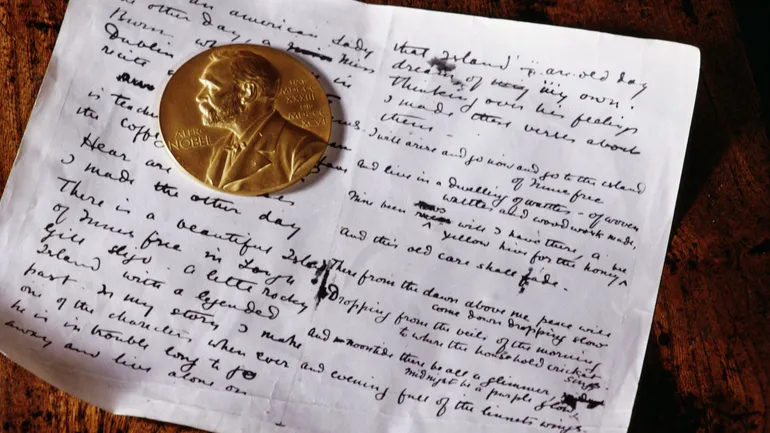 an american lady
the other day, a Miss
Burn
Dublin who in
is teach
the coffe
Hear are
I made the other day
There is a beautiful Isla
of Innes free in Lough
Gill Sligo. A little rocky
Island with a legended
past. In my story I make
one of the charecters when ever
he is in trouble long to go
away and live alone on
that Island – an old day
dream of my own.
Thinking over his feelings
I made these verses about
them –
I will arise and go now and go to the island
of Innis free
and live in a dwelling of wattles – of woven
wattles and wood work made,
Nine been will I have there, a
yellow hive for the honey
And this old care shall fade.
There from the dawn above me peace will
come down dropping slow
Dropping from the veils of the morning
to where the household cricket
sings.
and noontide there be all a glimmer
midnight be a purple glow
and evening full of the linnets wings.
ALFR
NOBEL
NAT
MDCCC
XXXIII
OB
MDCCC
XCVI